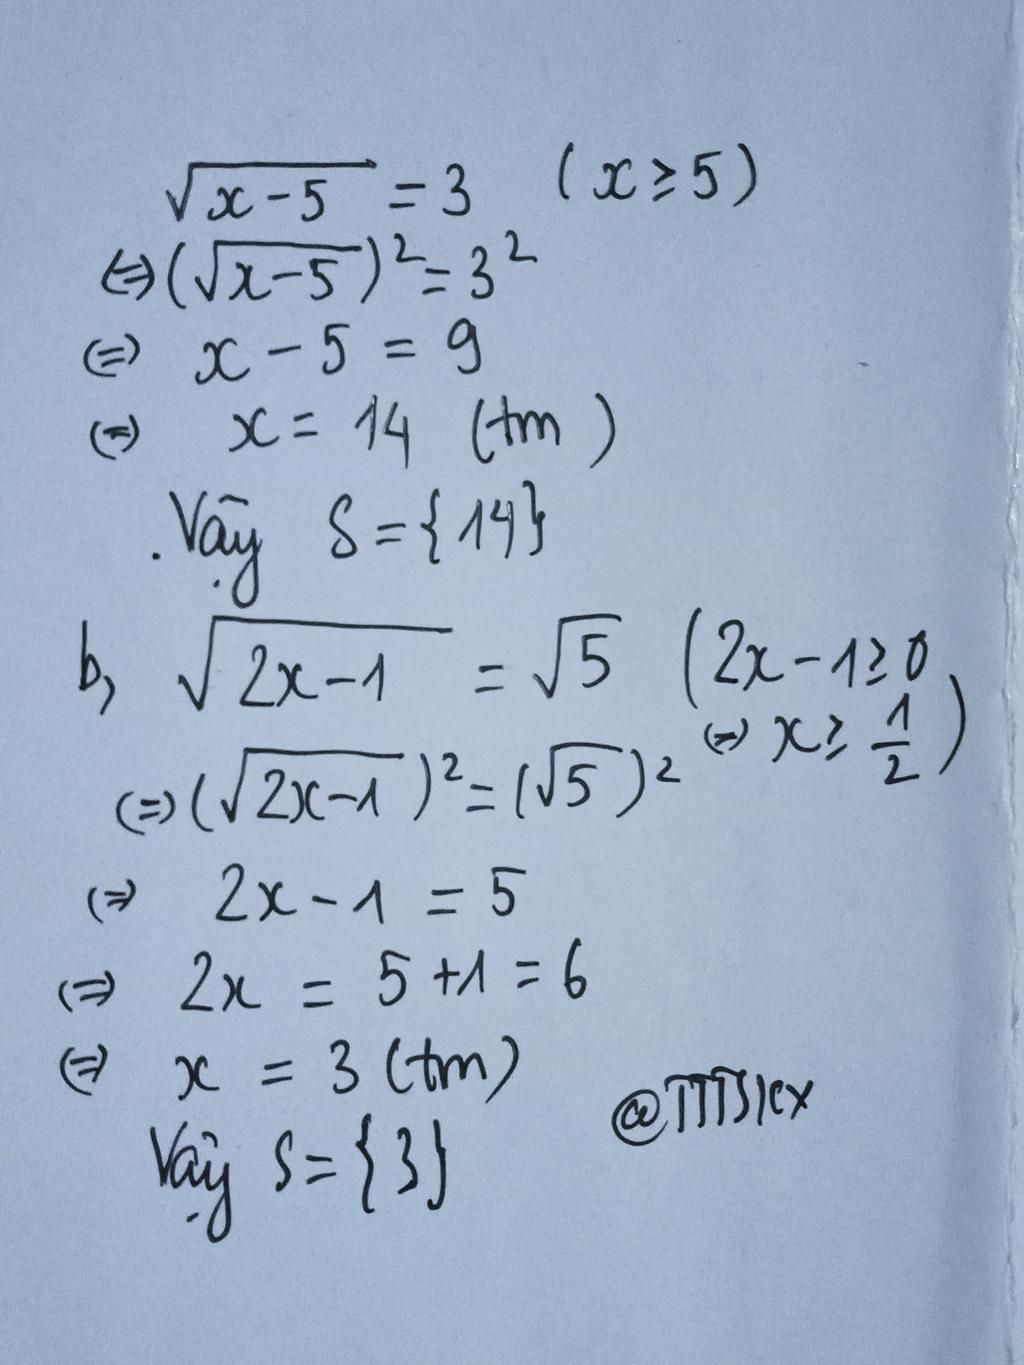 √(x-5) = 3 (x ≥ 5)
⇔ (√(x-5))² = 3²
⇔ x - 5 = 9
⇔ x = 14 (tm)
. Vậy S = {14}
b, √(2x-1) = √5 (2x-1 ≥ 0
⇔ x ≥ 1/2)
⇔ (√(2x-1))² = (√5)²
⇔ 2x - 1 = 5
⇔ 2x = 5 +1 = 6
⇔ x = 3 (tm)
Vậy S = {3}